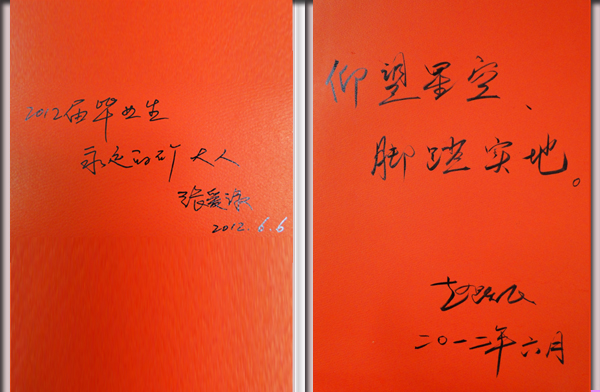 2012届毕业生
永远的矿大人
张爱淑
2012.6.6
仰望星空、
脚踏实地。
赵跃民
二〇一二年六月